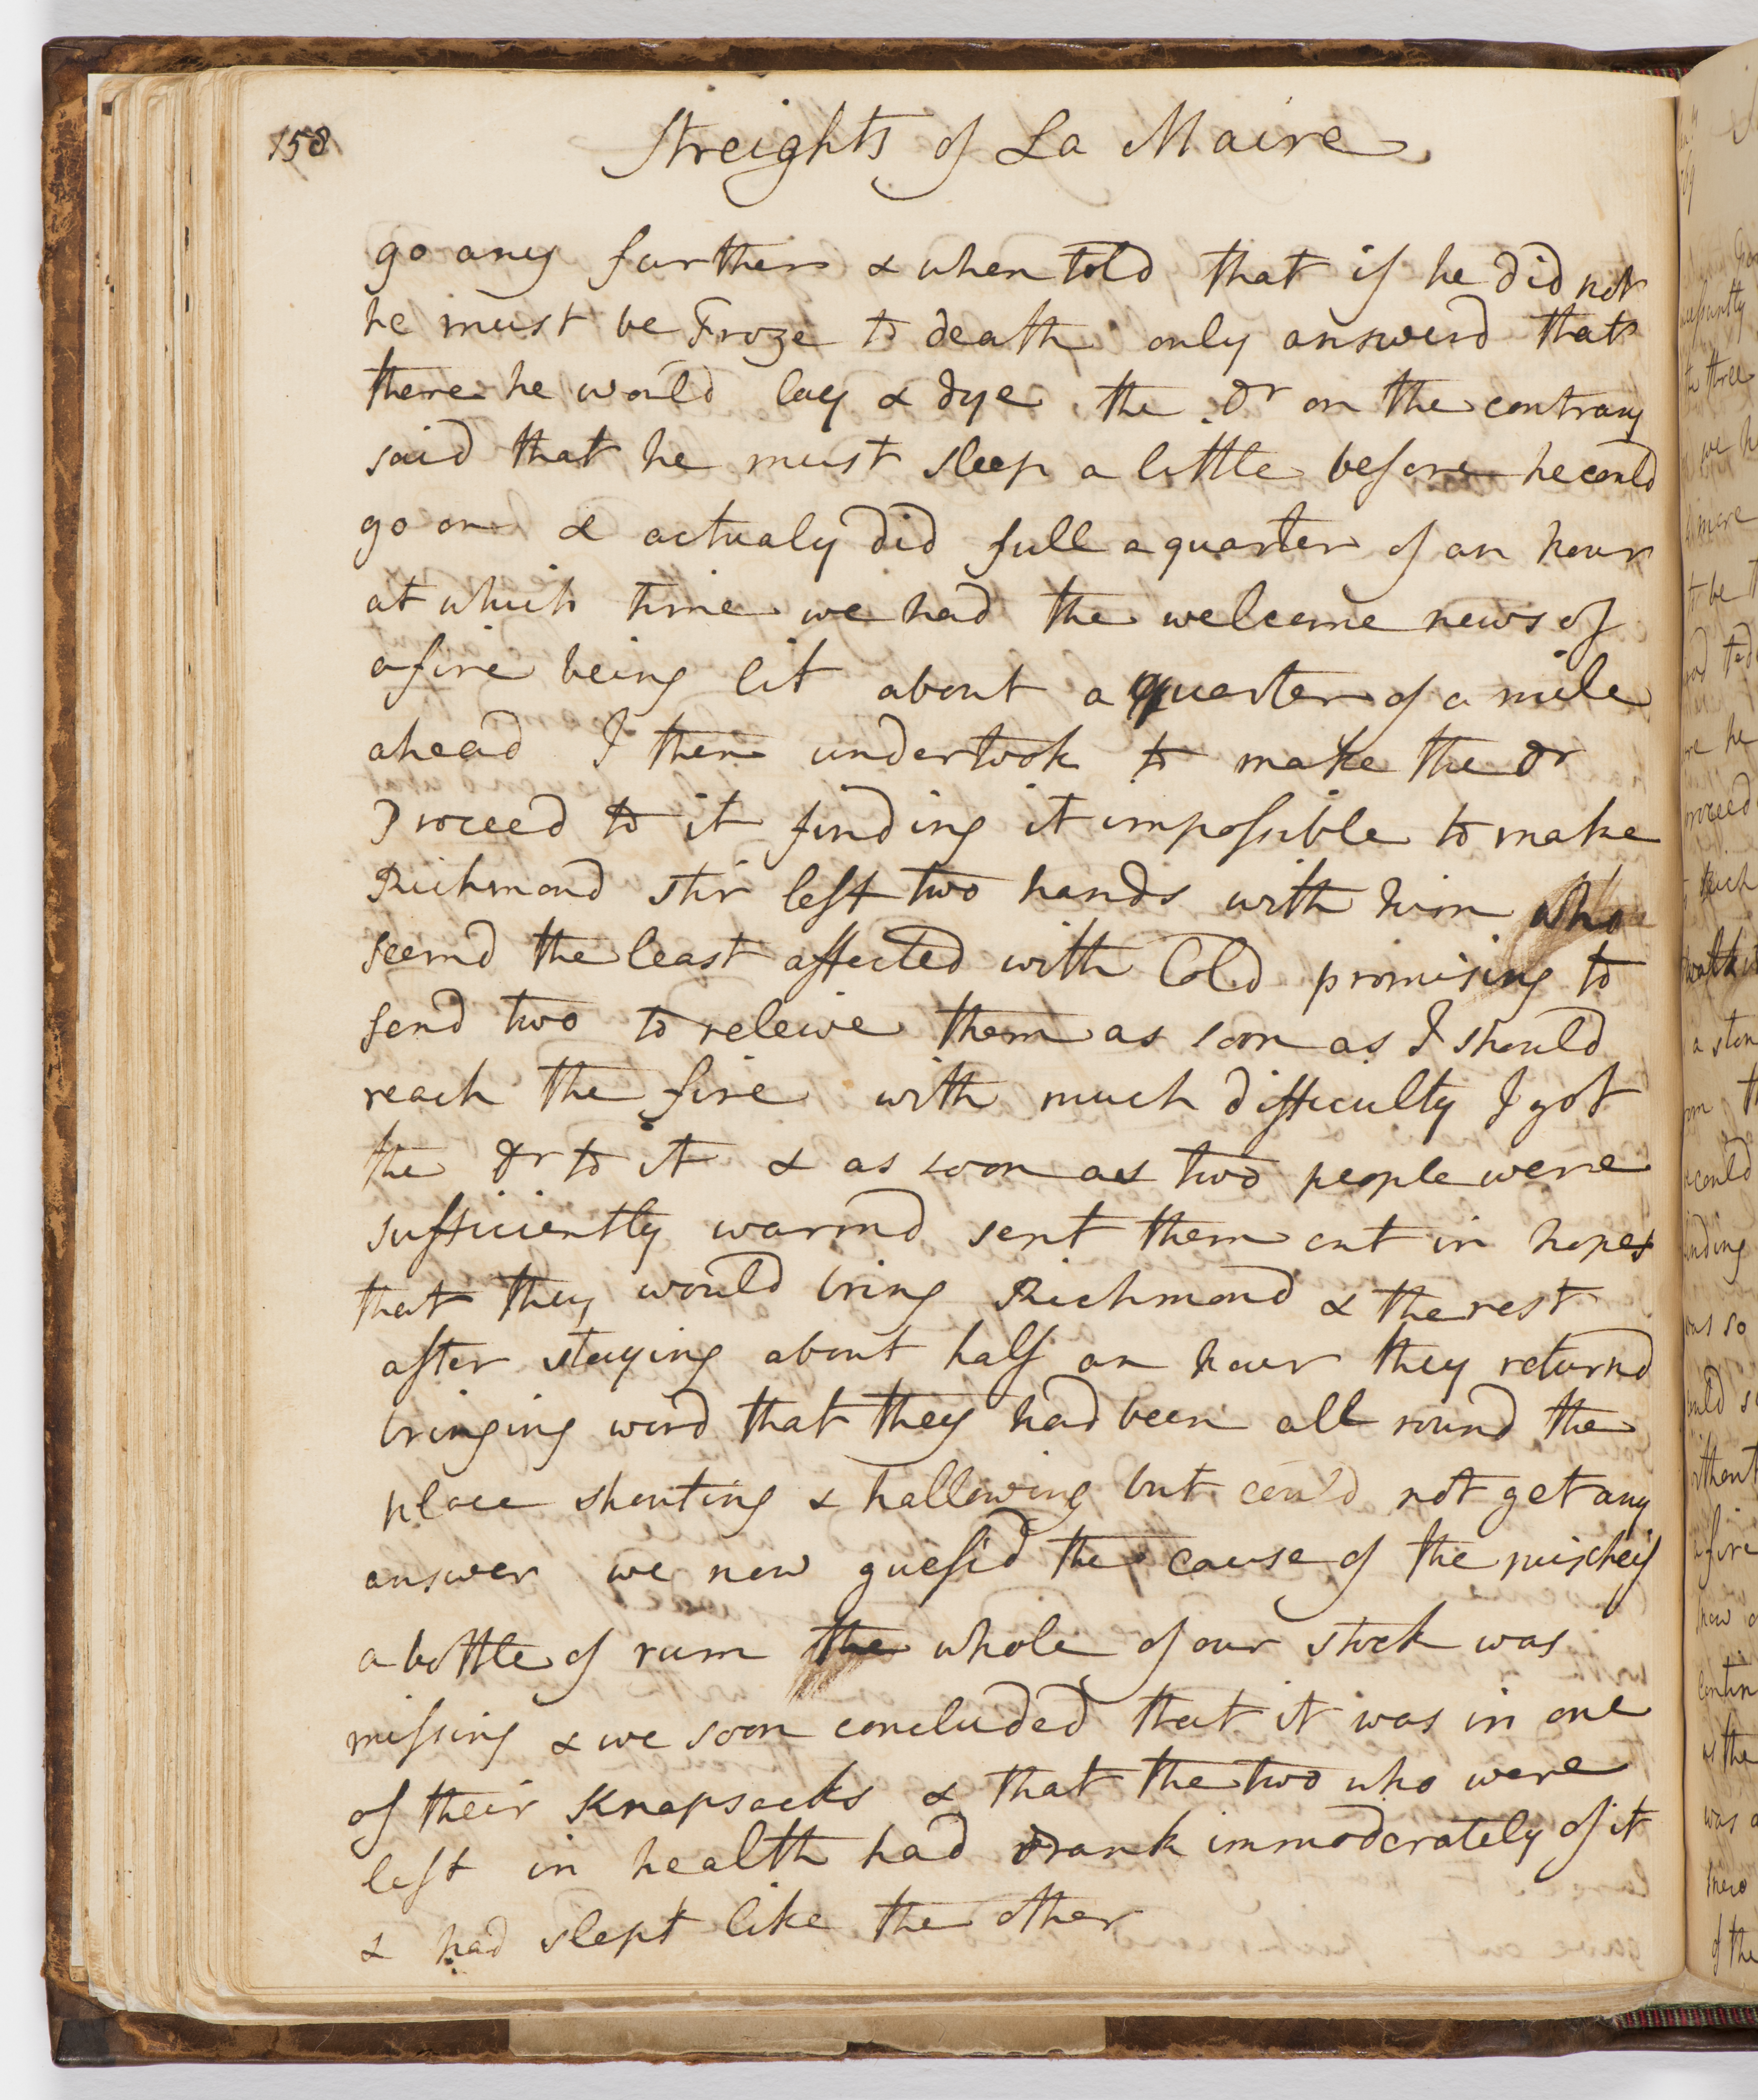 158
Streights of La Maire
go any farther & when told that if he did not
he must be Froze to death only answerd that
there he would lay & dye the Dr on the contrary
said that he must sleep a little before he could
go on & actualy did full a quarter of an hour
at which time we had the welcome news of
a fire being lit about a quarter of a mile
ahead I then undertook to make the Dr
Proceed to it finding it impossible to make
Richmond stir left two hands with him who
seemd the least affected with Cold promising to
send two to releive them as soon as I should
reach the fire with much difficulty I got
the Dr to it & as soon as two people were
sufficiently warmd sent them out in hopes
that they would bring Richmond & the rest
after staying about half an hour they returnd
bringing word that they had been all round the
place shouting & hallowing but could not get any
answer we now guess'd the cause of the mischeif
a bottle of rum the whole of our stock was
missing & we soon concluded that it was in one
of their Knapsacks & that the two who were
left in health had drank immoderately of it
& had slept like the other